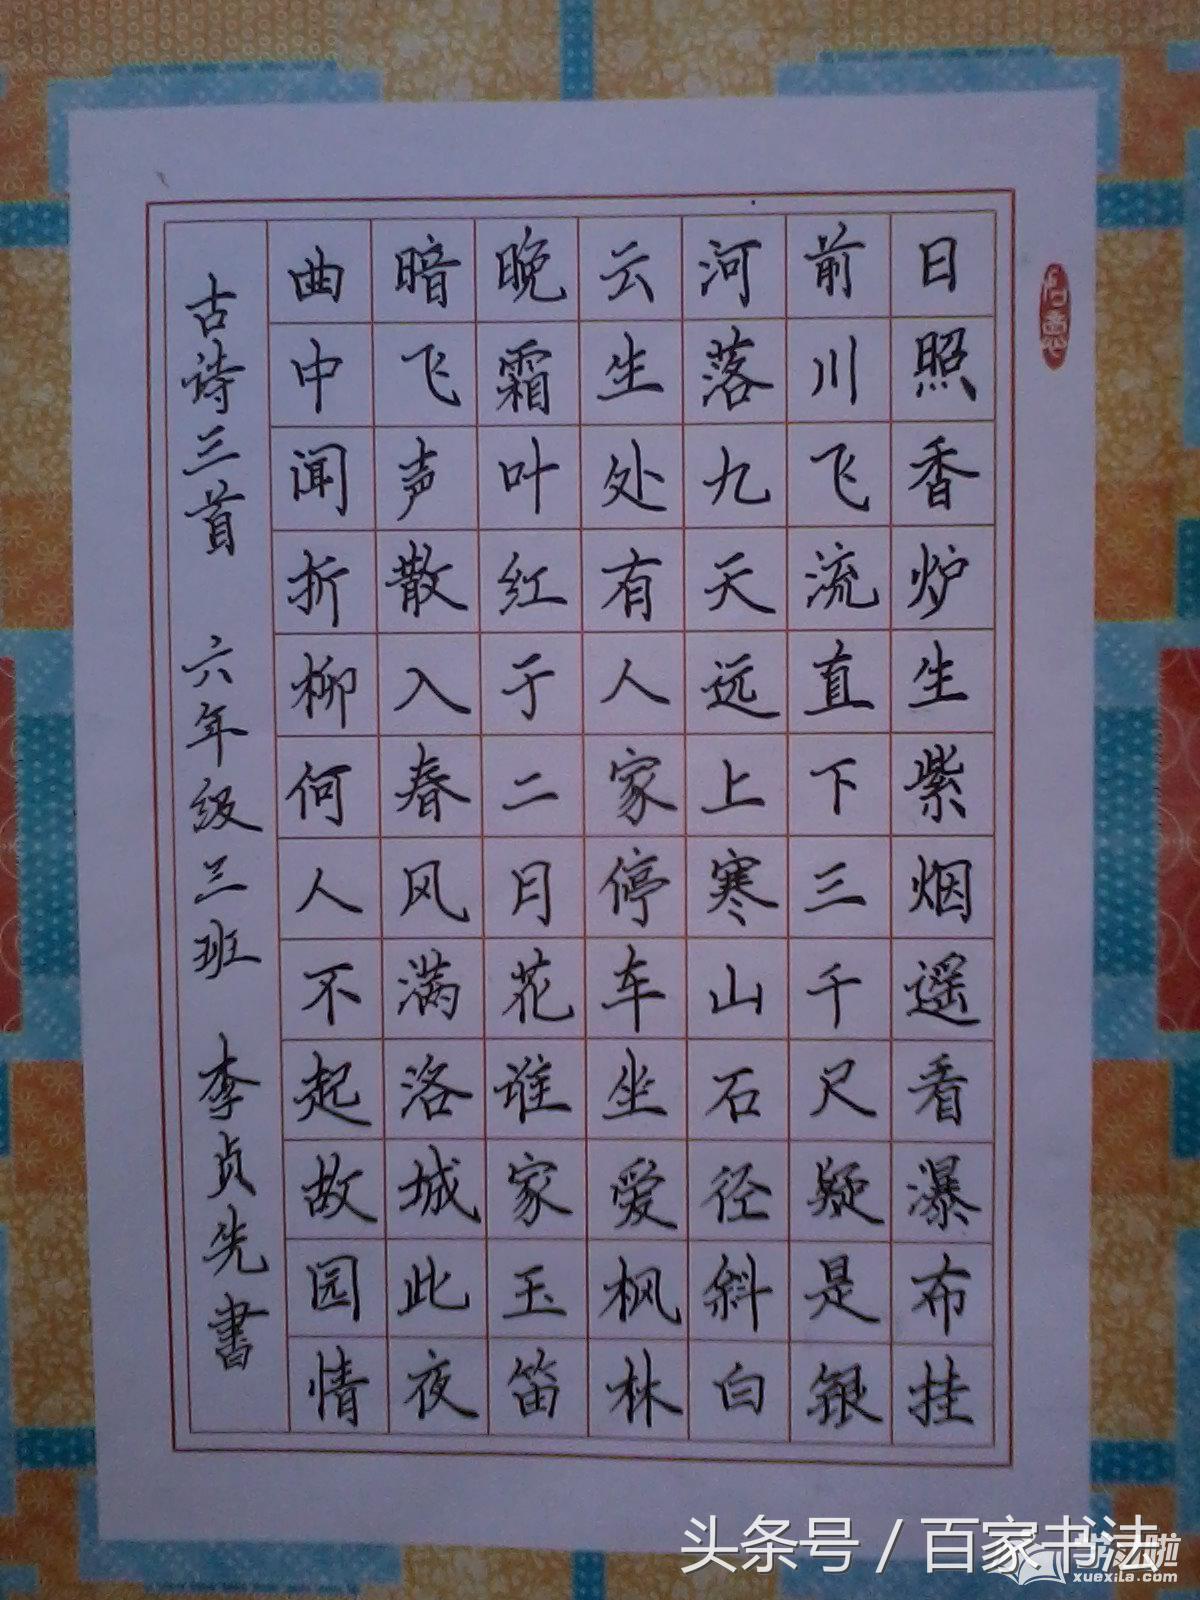 日照香炉生紫烟遥看瀑布挂
前川飞流直下三千尺疑是银
河落九天远上寒山石径斜白
云生处有人家停车坐爱枫林
晚霜叶红于二月花谁家玉笛
暗飞声散入春风满洛城此夜
曲中闻折柳何人不起故园情
古诗三首 六年级三班 李贞先書
头条号 / 百家书法
xuexila.com